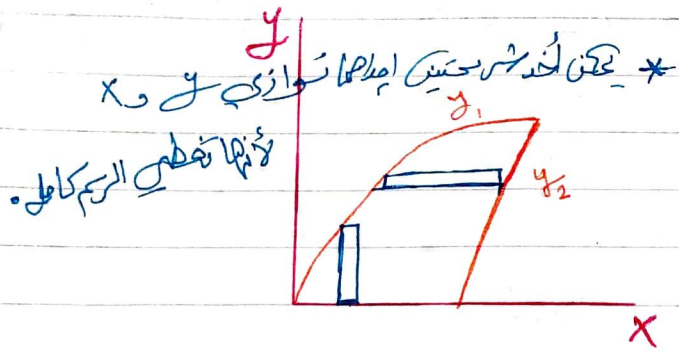 y
* يمكن أخد شريحتين إحداهما توازي y و x
لأنها تغطي الرسم كامل.
y₁
y₂
x